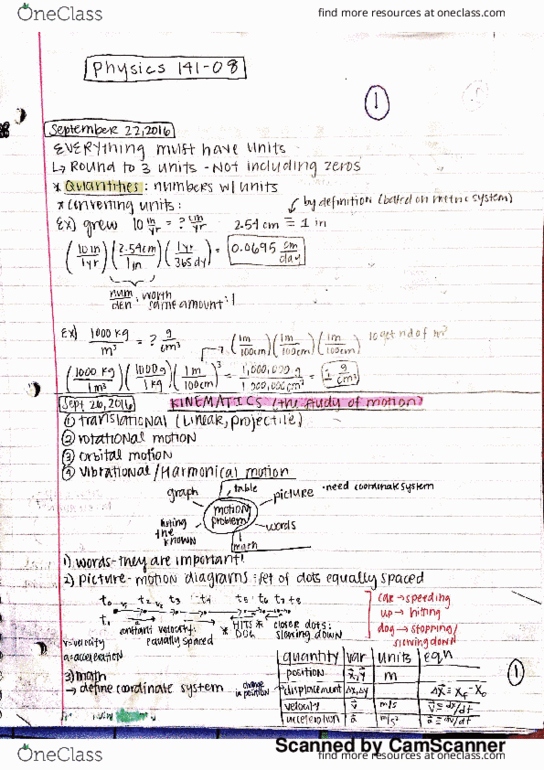 OneClass
find more resources at oneclass.com
Physics 141-08
1
September 22, 2016
EVERYthing must have units
↳ Round to 3 units - Not including zeros
* Quantities: numbers w/ units
* Converting units:
by definition (based on metric system)
Ex) grew 10 in/yr = ? cm/yr 2.54 cm ≡ 1 in
(10 in/1 yr)(2.54 cm/1 in)(1 yr/365 dy) = 0.0695 cm/day
num/den: worth same amount: 1
Ex) 1000 kg/m³ = ? g/cm³ (1m/100cm)(1m/100cm)(1m/100cm) to get rid of m³
(1000 kg/1m³)(1000g/1 kg)(1m/100cm)³ = 1,000,000 g/1,000,000 cm³ = 1 g/cm³
Sept 26, 2016 KINEMATICS (the study of motion)
① translational (Linear, projectile)
② rotational motion
③ orbital motion
④ vibrational/Harmonical motion
graph table picture • need coordinate system
motion problem
the known words
math
1) words - they are important!
2) picture - motion diagrams: set of dots equally spaced
constant velocity: equally spaced
* HITS * DOG
closer dots: slowing down
car → speeding
up → hitting
dog → stopping/
slowing down
v = velocity
a = acceleration
3) math
→ define coordinate system
change in position
quantity var units eqn
position x, y m
displacement Δx, Δy Δx = xf - xo
velocity v m/s v = dx/dt
acceleration a m/s² a = dv/dt
1
Scanned by CamScanner
OneClass
find more resources at oneclass.com